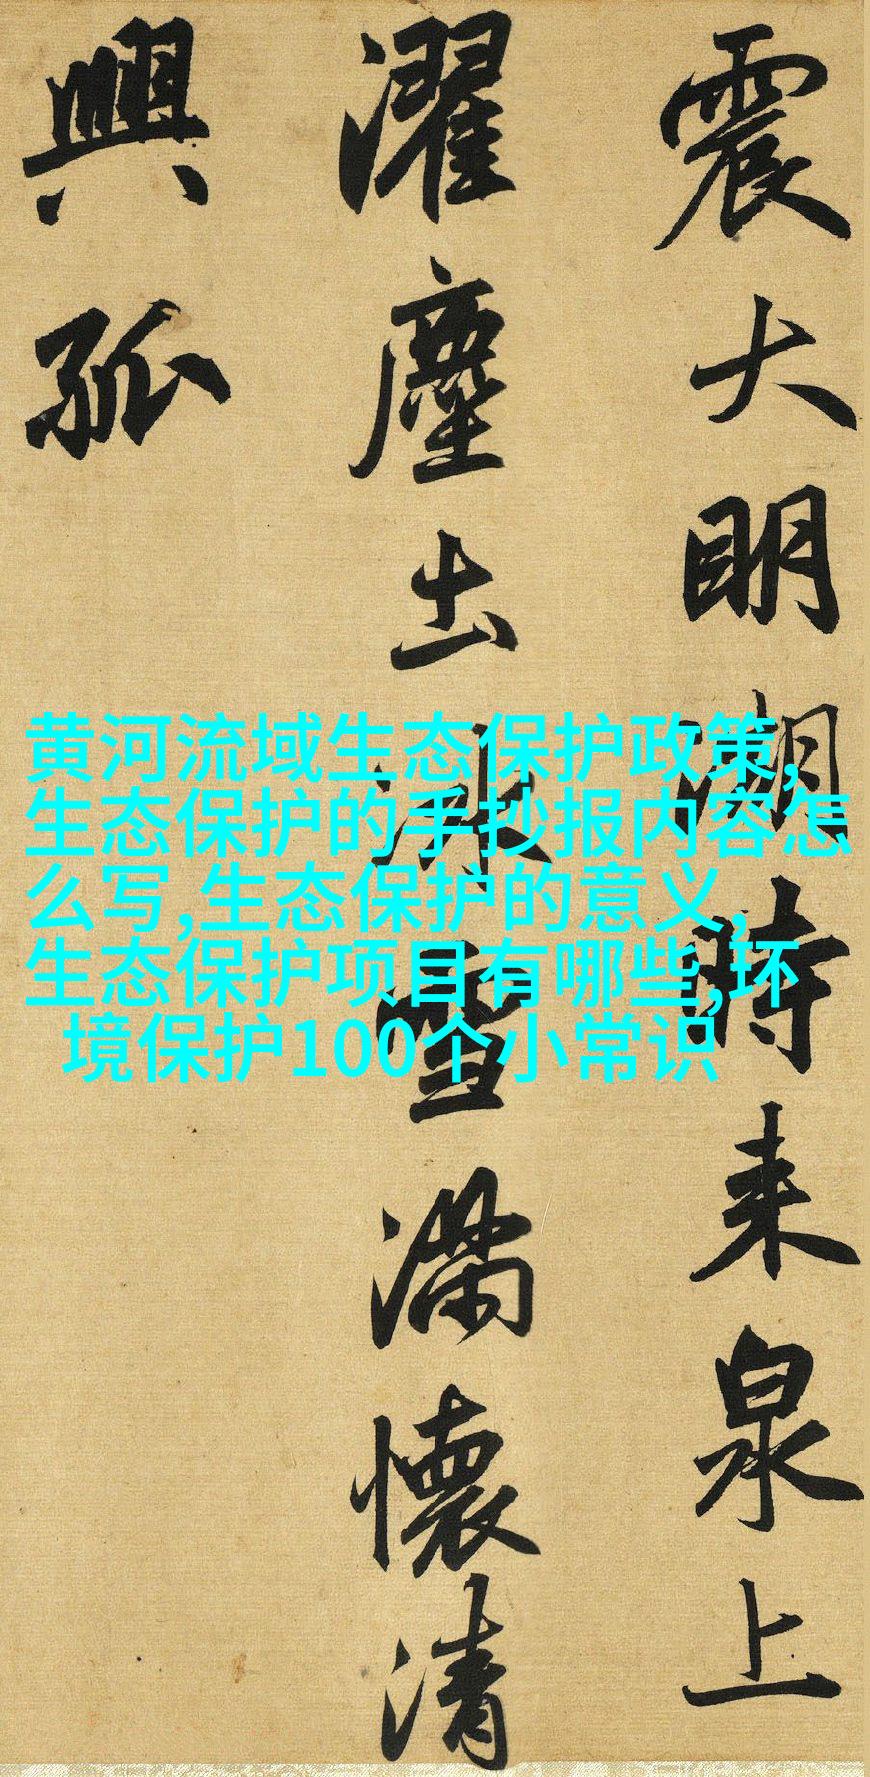 震大明湖時来泉上
濯塵土冰雪滿懷清
興孤
黄河流域生态保护政策,
生态保护的手抄报内容怎
么写,生态保护的意义,
生态保护项目有哪些,环
境保护100个小常识